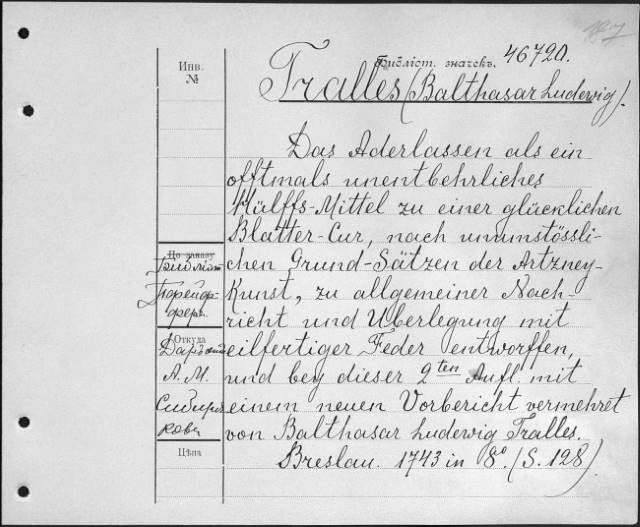 187
Библіот. значекъ. 46720.
Инв.
№
Tralles (Balthasar Ludewig).
Das Aderlassen als ein
offtmals unentbehrliches
Hülffs-Mittel zu einer glücklichen
Blatter-Cur, nach unumstössli-
chen Grund-Sätzen der Artzney-
Kunst, zu allgemeiner Nach-
richt und Uberlegung mit
eilfertiger Feder entworffen,
und bey dieser 2ten Aufl. mit
einem neuen Vorbericht vermehret
von Balthasar Ludewig Tralles.
Breslau. 1743 in 8º. (S. 128).
По заказу
Откуда
А. М.
Сибиря
кова
Цѣна